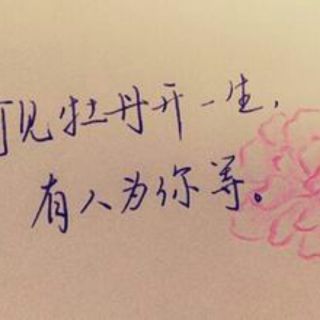 可见牡丹开一生，
有人为你等。